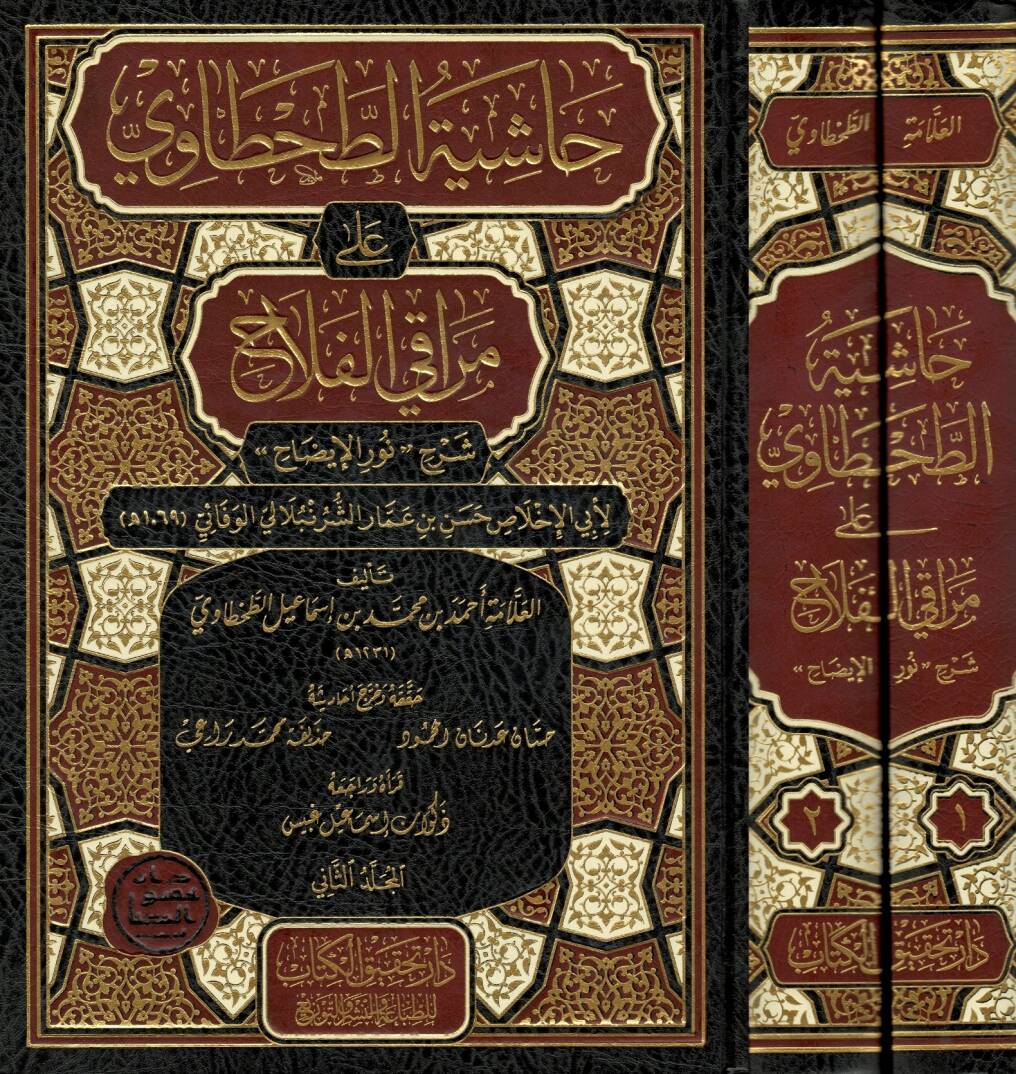 حَاشِيَةُ الطَّحْطَاوِيِّ
عَلَى
مَرَاقِي الفَلَاحِ
شَرْحِ «نُورِ الإِيضَاحِ»
لِأَبِي الإِخْلَاصِ حَسَنِ بنِ عَمَّار الشُّرُنْبُلَالِيِّ الوَفَائِيِّ (١٠٦٩هـ)
تَأليف
العَلَّامَةِ أَحْمَدَ بن مُحَمَّد بن إِسْمَاعِيل الطَّحْطَاوِيّ
(١٢٣١هـ)
حَقَّقَهُ وَخَرَّجَ أَحَادِيثَهُ
حسَّان عدنَان
حذيفة محمَّد رَاعِي
قَرَأَهُ وَرَاجَعَهُ
إِسمَاعيل غبيس
المُجَلَّدُ الثَّانِي
دار
دَار تحقيق الكتاب
للطباعة والنشر والتوزيع
العَلَّامَة الطَّحْطَاوِيّ
حَاشِيَةُ
الطَّحْطَاوِيِّ
عَلَى
مَرَاقِي الفَلَاحِ
شَرْحِ «نُورِ الإِيضَاحِ»
١
٢
دَار تحقيق الكتاب